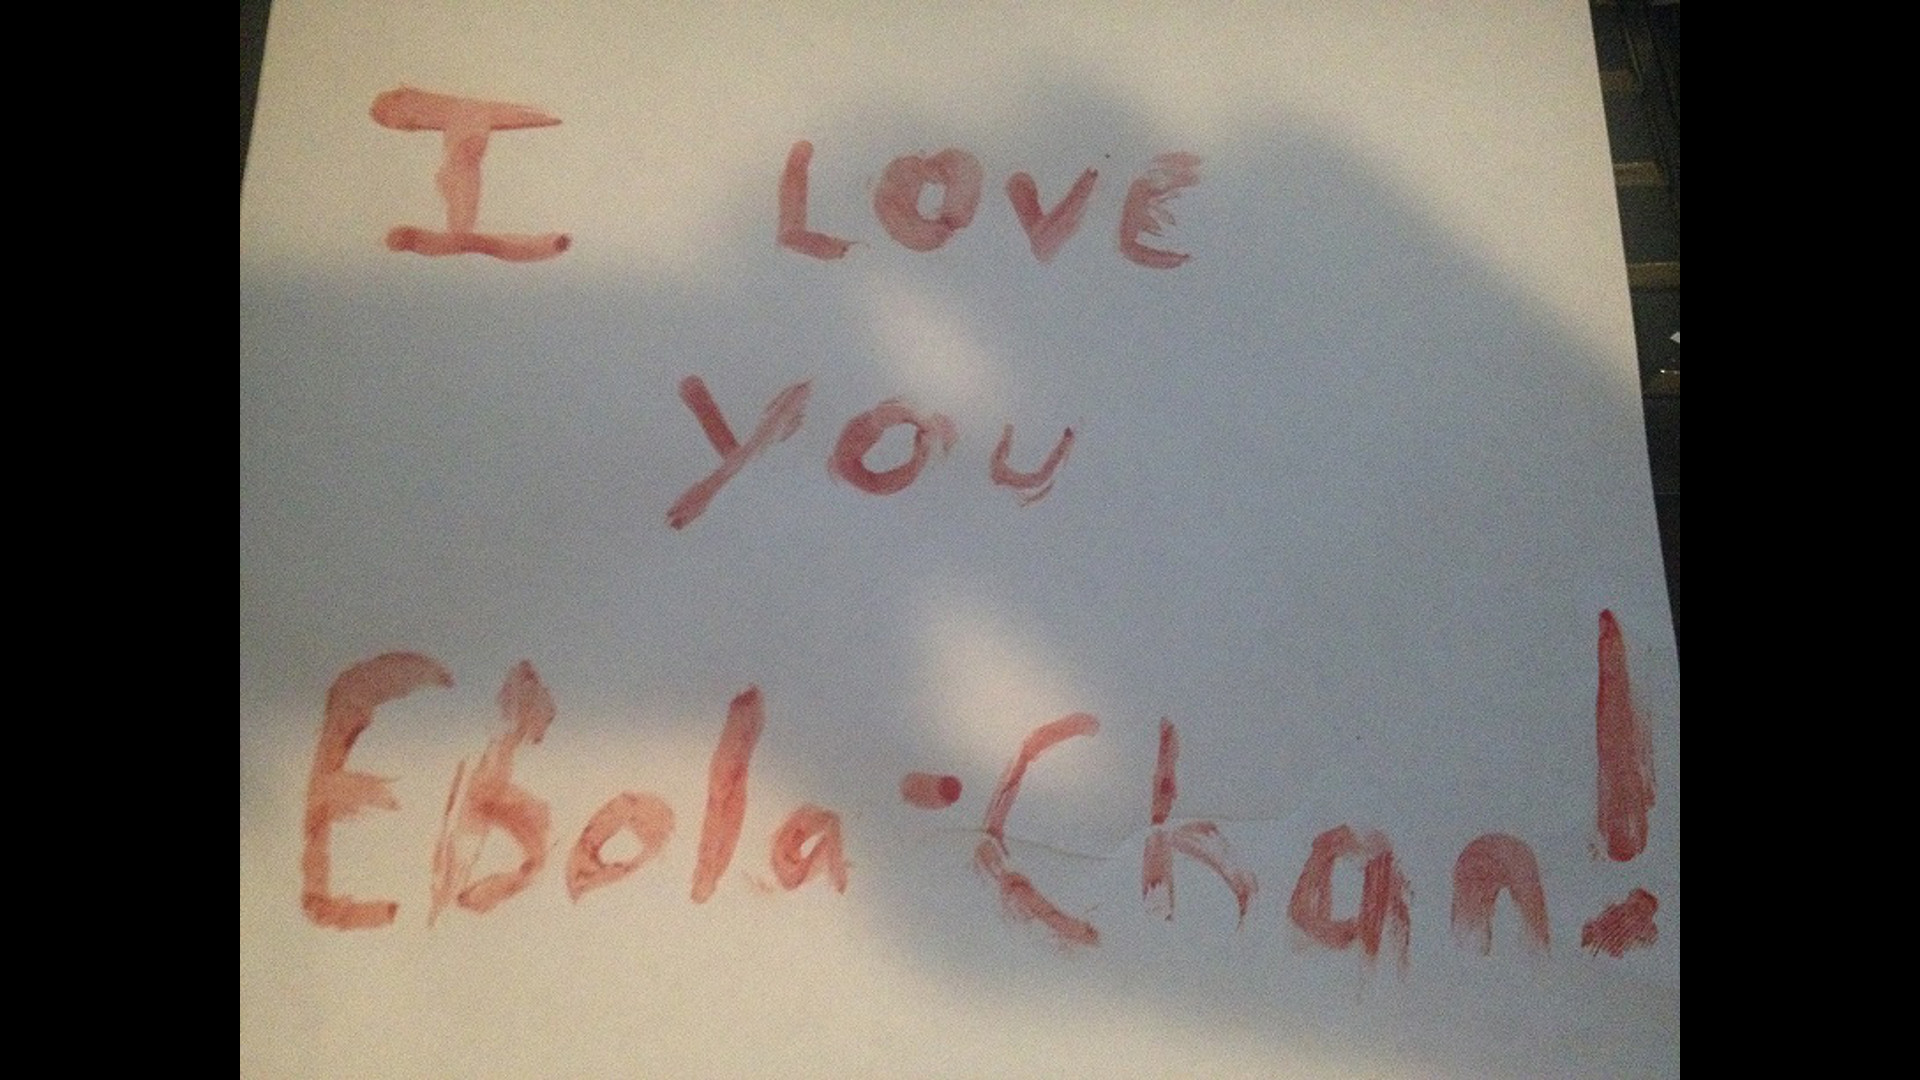 I LOVE
YOU
EBola-Chan!